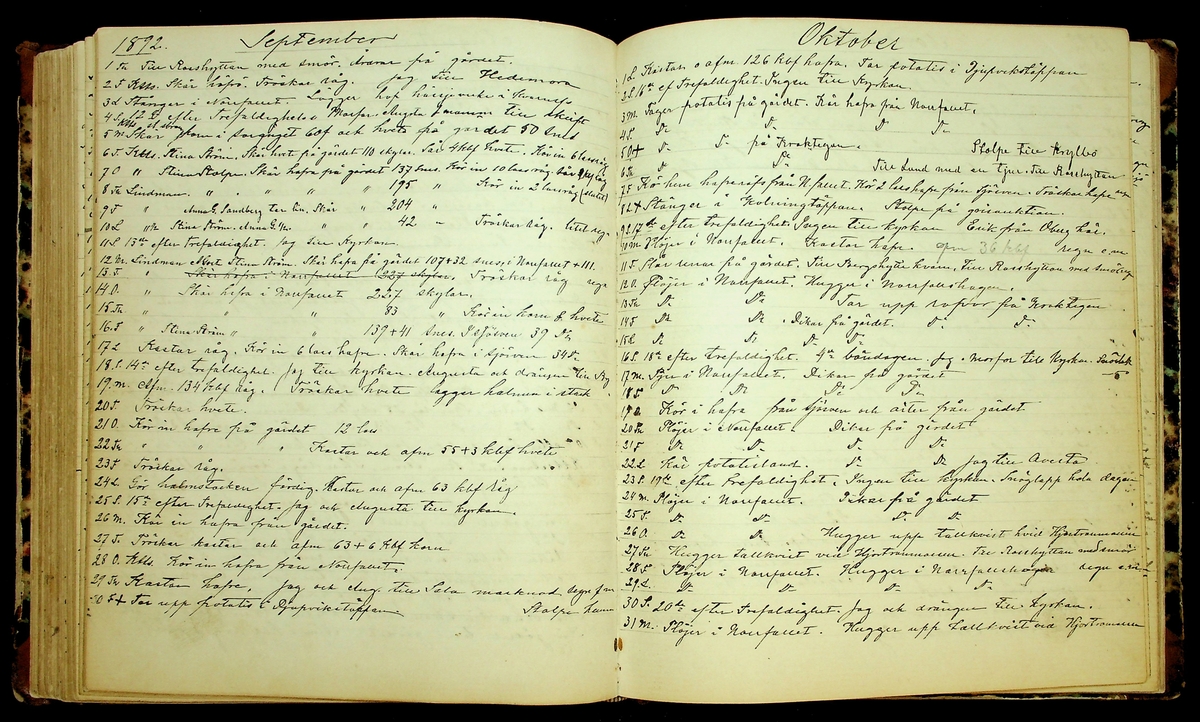 1892. September
1 Th Till Rosshyttan med smör. på gärdet.
2 F Skär hafra. Tröskar råg. Jag till Hedemora
3 L Stänger i Norrfallet. Lägger
4 S. efter Trefaldighet. Morfar Augusta o mamma till
5 M Skär korn i 60 f och hvete på gärdet 50 snes
6 T. Stina Ström. Skär hvete på gärdet 110 skylar. 4 kbf hvete. Kör in 6 lass råg
7 O " Stina Stolpe. Skär hafra på gärdet 137 snes. Kör in 10 lass råg.
8 Th Lindman " " " " 195 " Kör in lass råg (slutet)
9 F " Anna G. Sandberg Skär " 204 "
10 L Stina Ström. Anna G. " " 42 " Tröskar råg.
11 S. 13de efter Trefaldighet. Jag till Kyrkan.
12 M. Lindman Stina Ström. Skär hafra på gärdet 107+32 snes, i Norrfallet + 111.
13 T. " Skär hafra i Norrfallet 227 skylar. Tröskar råg regn
14 O. " Skär hafra i Norrfallet 227 skylar.
15 Th " " " 83 " Kör in korn o hvete
16 F. " Stina Ström " " 139+41 snes. I Sjöven 39 Do
17 L Kastar råg. Kör in 6 lass hafre. Skär hafre i Sjöven 34 S.
18 S. 14de efter trefaldighet. Jag till kyrkan. Augusta och drängen till Ny
19. M. Afm. 134 kbf råg. Tröskar hvete lägger halmen i stack
20 T. Tröskar hvete.
21 O. Kör in hafre på gärdet 12 lass
22 Th " " Kastar och afm 55+3 kbf hvete
23 F Tröskar råg.
24 L Gör halmstacken färdig. Kastar och afm 63 kbf råg
25 S. 15de efter Trefaldighet. Jag och Augusta till kyrkan.
26 M. Kör in hafra från gärdet.
27 T. Tröskar kastar och afm 63+6 kbf korn
28 O. Kör in hafra från Norrfallet.
29 Th Kastar hafre, Jag och Aug. till Sala marknad regn
30 F+ Tar upp potatis i Djupviktäppan Stolpe
Oktober
1 L. Kastar o afm 126 kbf hafra. Tar potatis i Djupvikstäppan
2 S. 16de ef Trefaldighet. Ingen till Kyrkan.
3 M. Tager potatis på gärdet. Kör hafra från Norrfallet.
4 T Do Do Do Do
5 O+ Do Do på Kroktegen. Stolpe till Krylbo
6 Th Do Do Till Lund med en tjur. Till Rosshyttan
7 F Kör hem från N.fallet. Kör 2 lass hafre från Sjöven Tröskar hafre
8 L+ Stänger i Kolningtäppan. Stolpe på
9 S 17de efter trefaldighet Ingen till kyrkan Erik från
10 M. Plöjer i Norrfallet. Kastar hafre. afm 36 kbf regn o
11 T. Slår på gärdet. Till Bergshytte kvarn, Till Rosshyttan med smör
12 O. Plöjer i Norrfallet. Hugger i Norrfallshagen.
13 Th Do Do Tar upp rofvor på Kroktegen
14 F Do Do. Dikar på gärdet. Do. Do.
15 L Do Do Do Do
16 S. 18de efter trefaldighet. 4de böndagen. Jag o morfar till Kyrkan.
17 M. Plöjer i Norrfallet. Dikar på gärdet
18 T Do Do Do Do
19 O Kör i hafra från Sjöven och ärter från gärdet
20 Th Plöjer i Norrfallet. Dikar på gärdet
21 F Do Do Do Do
22 L Kör potatisland. Do Do Jag till Avesta
23 S. 19de efter Trefaldighet. Ingen till kyrkan. hela dagen
24 M. Plöjer i Norrfallet. Dikar på gärdet
25 T. Do Do Do Do
26 O. Do Do Hugger upp tallkvist hvid Hjortronmossen
27 Th. Hugger tallkvist vid Hjortronmossen. Till Rosshyttan med smör
28 F Plöjer i Norrfallet. Hugger i Norrfallshagen regn
29 L. Do Do Do Do
30 S. 20de efter Trefaldighet. Jag och drängen till kyrkan.
31 M. Plöjer i Norrfallet. Hugger upp Tallkvist vid Hjortronmossen